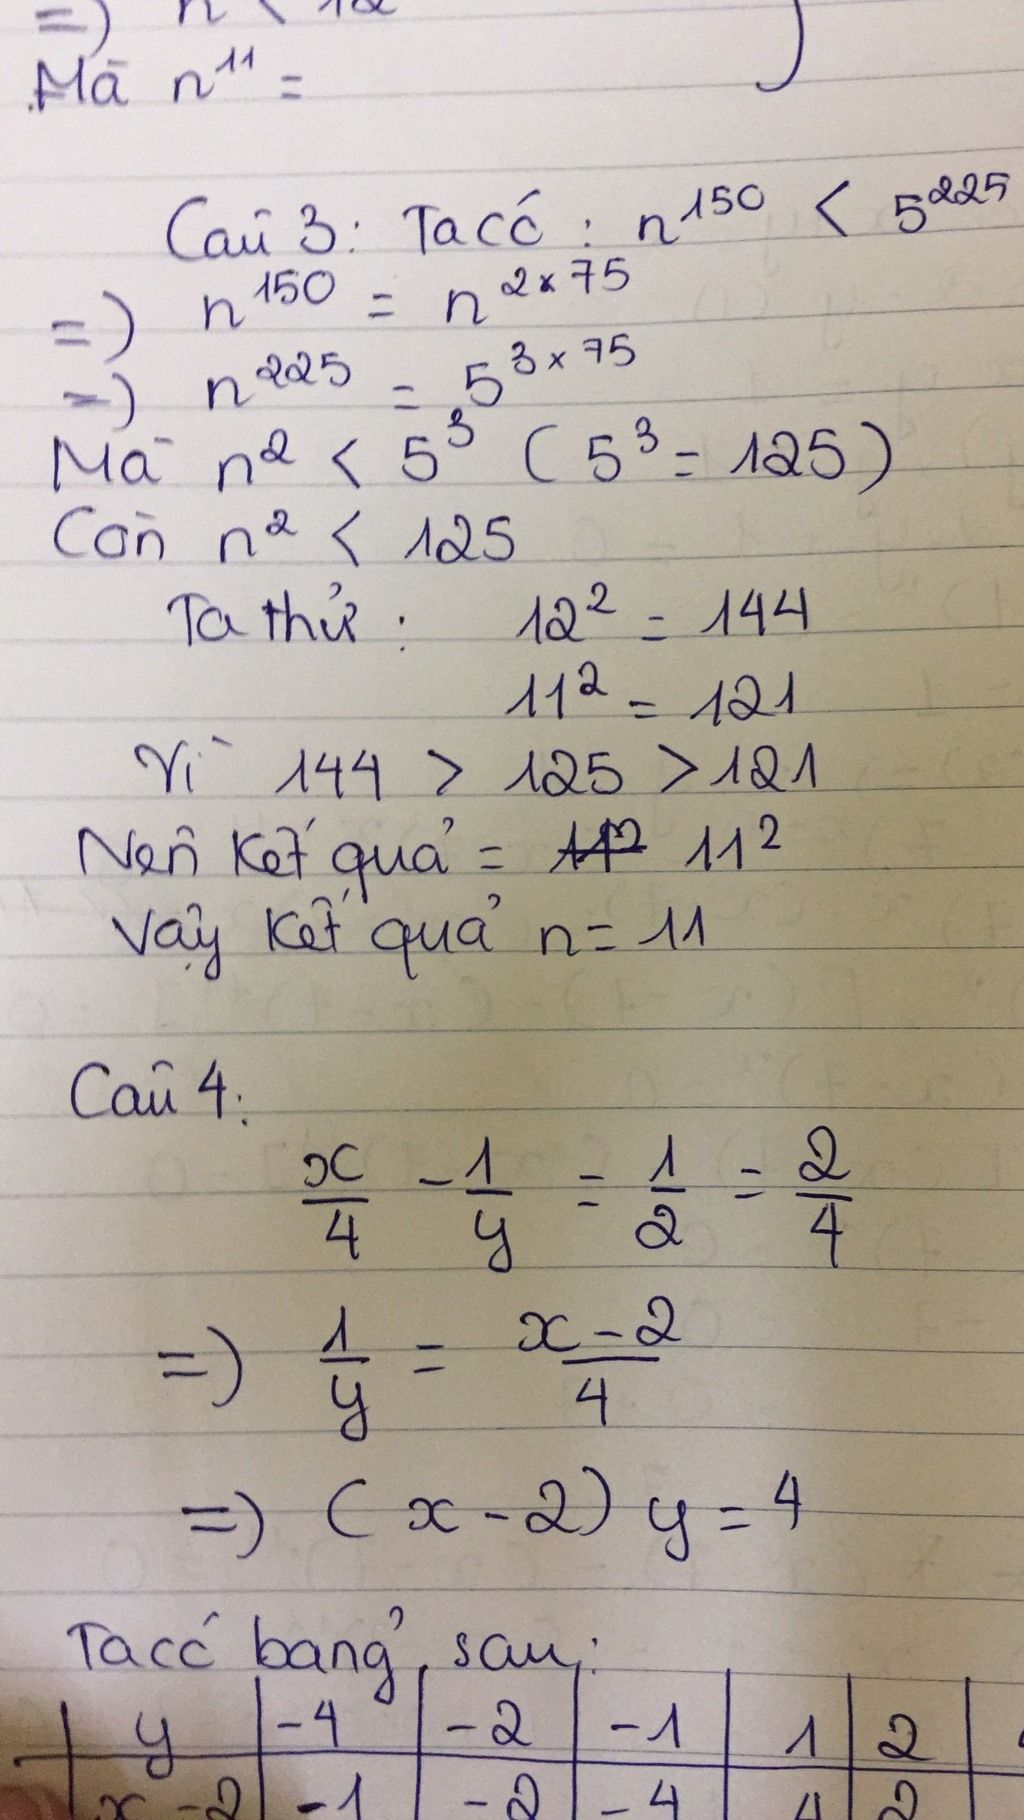 =) n < 12
Mà n¹¹ =
Câu 3: Ta có : n¹⁵⁰ < 5²²⁵
=) n¹⁵⁰ = n²ˣ⁷⁵
=) n²²⁵ = 5³ˣ⁷⁵
Mà n² < 5³ ( 5³ = 125 )
Còn n² < 125
Ta thử : 12² = 144
11² = 121
Vì 144 > 125 > 121
Nên kết quả = 11²
Vậy kết quả n = 11
Câu 4:
x/4 - 1/y = 1/2 = 2/4
=) 1/y = x-2/4
=) ( x - 2 ) y = 4
Ta có bảng sau :
y | -4 | -2 | -1 | 1 | 2
x - 2 | -1 | -2 | -4 | 4 | 2